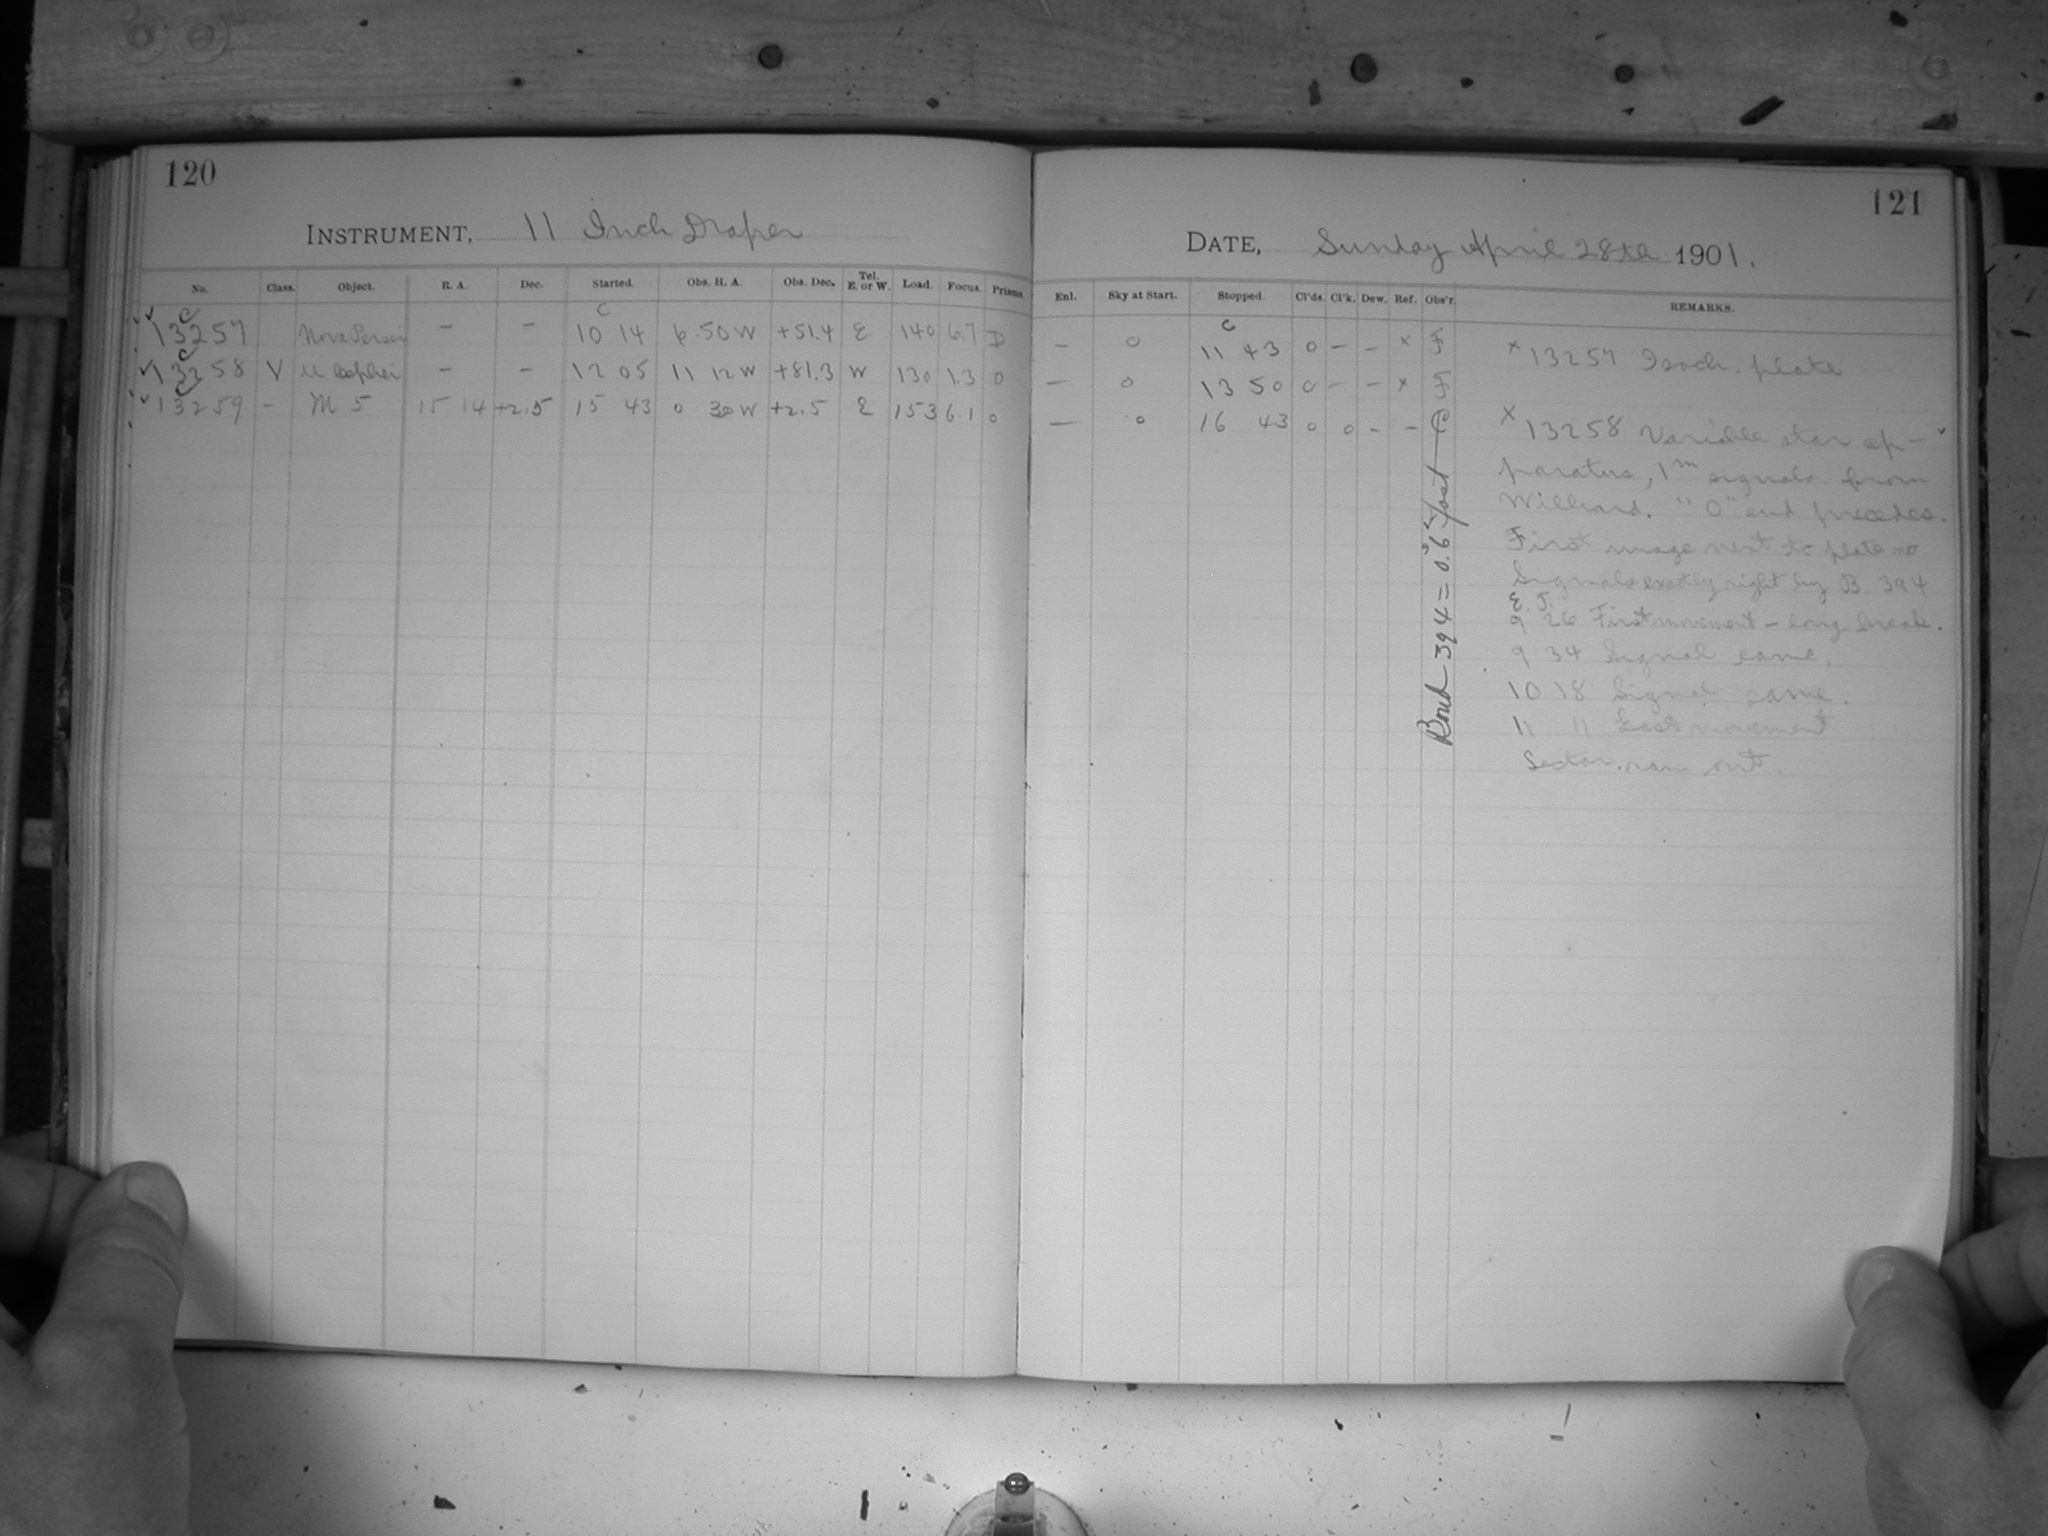 120
INSTRUMENT, 11 Inch Draper
No. Class. Object. R. A. Dec. Started. Obs. H. A. Obs. Dec. Tel. E. or W. Load. Focus. Prisms
13257 Nova Persei - - 10 14 6.50 W +51.4 E 140 6.7 D
13258 V U Cephei - - 12 05 11 12 W +81.3 W 130 1.3 0
13259 - M 5 15 14 +2.5 15 43 0 30 W +2.5 E 153 6.1 0
121
DATE, Sunday April 28th 1901.
Enl. Sky at Start. Stopped. Cl'ds. Cl'k. Dew. Ref. Obs'r. REMARKS.
- 0 11 43 0 - - x F
- 0 13 50 0 - - x F
- 0 16 43 0 0 - - C
x 13257 Isoch. plate
x 13258 Variable star ap-
paratus, 1m signals from
Williard. "O" end precedes.
First image next to plate no.
Signals exactly right by B. 394
E. T.
9 26 First movement - long break.
9 34 Signal came.
10 18 Signal came.
11 11 Last movement
Sector ran out.
Bond 394 = 0.6s fast